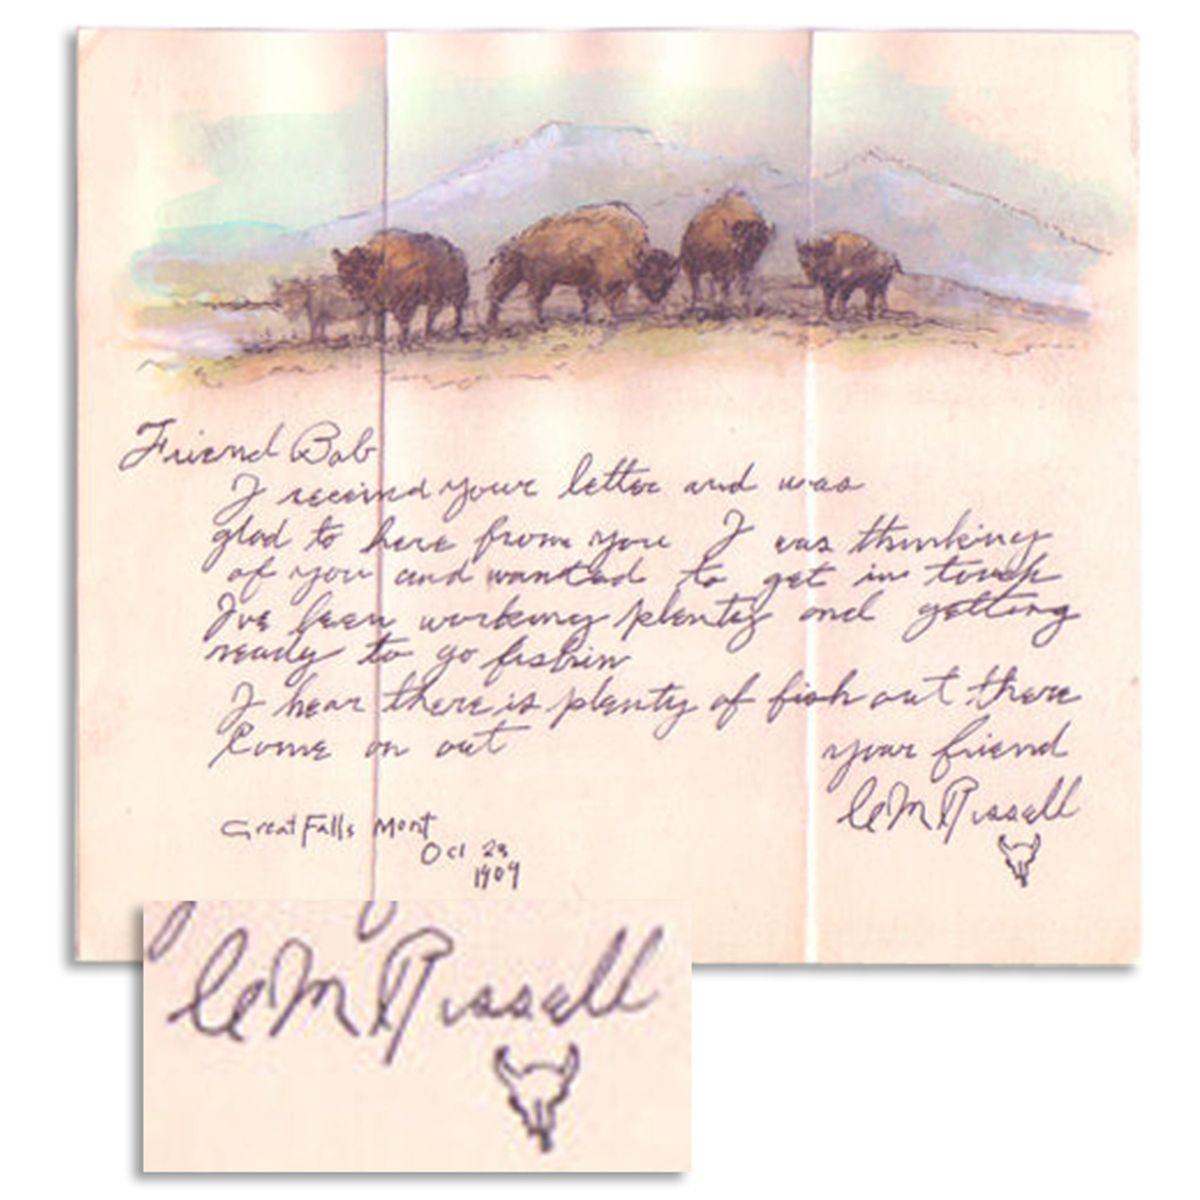 Friend Bob
I received your letter and was
glad to here from you I was thinking
of you and wanted to get in touch
I've been working plenty and getting
ready to go fishin
I hear there is plenty of fish out there
Come on out
your friend
CM Russell
Great Falls Mont
Oct
1909
CM Russell